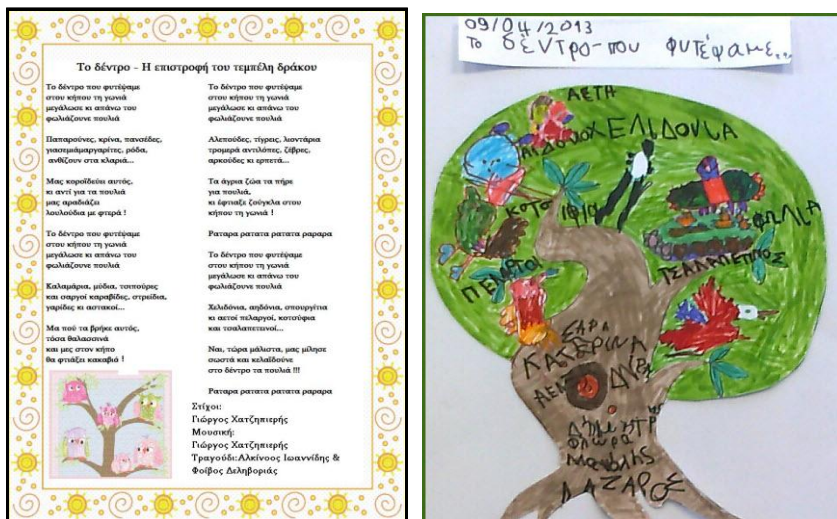 Το δέντρο - Η επιστροφή του τεμπέλη δράκου
Το δέντρο που φυτέψαμε
στου κήπου τη γωνιά
μεγάλωσε κι απάνω του
φωλιάζουνε πουλιά
Παπαρούνες, κρίνα, πανσέδες,
γιασεμιάμαργαρίτες, ρόδα,
ανθίζουν στα κλαριά...
Μας κοροϊδεύει αυτός,
κι αντί για τα πουλιά
μας αραδιάζει
λουλούδια με φτερά !
Το δέντρο που φυτέψαμε
στου κήπου τη γωνιά
μεγάλωσε κι απάνω του
φωλιάζουνε πουλιά
Καλαμάρια, μύδια, τσιπούρες
και σαργοί καραβίδες, στρείδια,
γαρίδες κι αστακοί...
Μα πού τα βρήκε αυτός,
τόσα θαλασσινά
και μες στον κήπο
θα φτιάξει κακαβιά !
Το δέντρο που φυτέψαμε
στου κήπου τη γωνιά
μεγάλωσε κι απάνω του
φωλιάζουνε πουλιά
Αλεπούδες, τίγρεις, λιοντάρια
τρομερά αντιλόπες, ζέβρες,
αρκούδες κι ερπετά...
Τα άγρια ζώα τα πήρε
για πουλιά,
κι έφτιαξε ζούγκλα στου
κήπου τη γωνιά !
Ραταρα ρατατα ρατατα ραραρα
Το δέντρο που φυτέψαμε
στου κήπου τη γωνιά
μεγάλωσε κι απάνω του
φωλιάζουνε πουλιά
Χελιδόνια, αηδόνια, σπουργίτια
κι αετοί πελαργοί, κοτσύφια
και τσαλαπετεινοί...
Ναι, τώρα μάλιστα, μας μίλησε
σωστά και κελαϊδούνε
στο δέντρο τα πουλιά !!!
Ραταρα ρατατα ρατατα ραραρα
Στίχοι:
Γιώργος Χατζηπιερής
Μουσική:
Γιώργος Χατζηπιερής
Τραγούδι:Αλκίνοος Ιωαννίδης &
Φοίβος Δεληβοριάς
09/04/2013
Το δέντρο-που φυτέψαμε...
ΑΕΤΗ
ΧΕΛΙΔΟΝΙΑ
ΦΩΛΙΑ
ΣΑΡΑ
ΚΑΤΕΡΙΝΑ
Φλώρα
ΛΑΖΑΡΟΣ